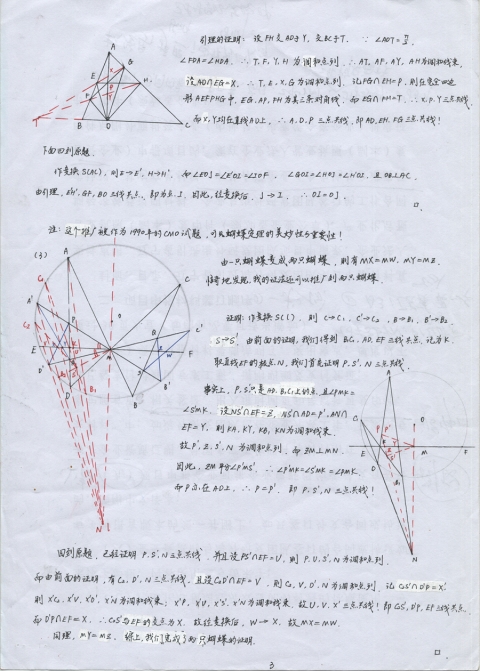 引理的证明: 设FH交AD于Y, 交BC于T. ∵ ∠ADT=π/2,
∠FDA=∠HDA. ∴ T, F, Y, H 为调和点列. ∴ AT, AF, AY, AH为调和线束.
设AD∩EG=X. ∴ T, E, X, G为调和点列. 记FG∩EH=P, 则在完全四边
形AEFPHG中, EG, AP, FH为其三条对角线. 而EG∩FH=T. ∴ X, P, Y三点共线.
而X, Y均在直线AD上, ∴ A, D, P 三点共线! 即AD, EH, FG三点共线!
下面回到原题.
作变换S(AC), 则E→E', H→H'. 而∠EOJ=∠E'OJ=∠IOF. ∠GOI=∠HOJ=∠H'OJ. 且OB⊥AC.
由引理, E'H', GF, BO三线共点, 即为点I. 因此, 经变换后, J→I. ∴ OI=OJ.
注: 这个推广被作为1990年的CMO试题, 可见蝴蝶定理的美妙性与重要性!
(3)
由一只蝴蝶变成两只蝴蝶, 则有MX=MW, MY=MZ.
惊奇地发现, 我的证法还可以推广到两只蝴蝶.
证明: 作变换S(l). 则 C→C₁, C'→C₂, B→B₁, B'→B₂,
S→S'. 由前面的证明, 我们得到BC₁, AD, EF三线共点, 记为K.
取直线EF的极点N, 我们首先证明P, S', N三点共线.
事实上, P, S'只是AD, B₁C₁上的点, 且∠PMK=
∠S'MK. 设NS'∩EF=Z, NS'∩AD=P', AN∩
EF=Y. 则KA, KY, KB, KN为调和线束.
故P', Z, S', N 为调和点列. 而ZM⊥MN.
因此, ZM平分∠P'MS'. ∴ ∠P'MK=∠S'MK=∠PMK.
而P亦在AD上, ∴ P=P'. 即P, S', N三点共线!
回到原题, 已经证明P, S', N三点共线, 并且设PS'∩EF=U, 则P, U, S', N为调和点列.
而由前面的证明, 有C₂, D', N三点共线, 且设C₂D'∩EF=V. 则C₂, V, D', N为调和点列. 记C₂S'∩D'P=X'.
则X'C₂, X'V, X'D', X'N为调和线束; X'P, X'U, X'S', X'N为调和线束. 故U, V, X'三点共线! 即C₂S', D'P, EF三线共点.
而D'P∩EF=X. ∴ C₂S'与EF的交点为X. 故经变换后, W→X. 故MX=MW.
同理, MY=MZ. 综上, 我们完成了两只蝴蝶的证明.
3